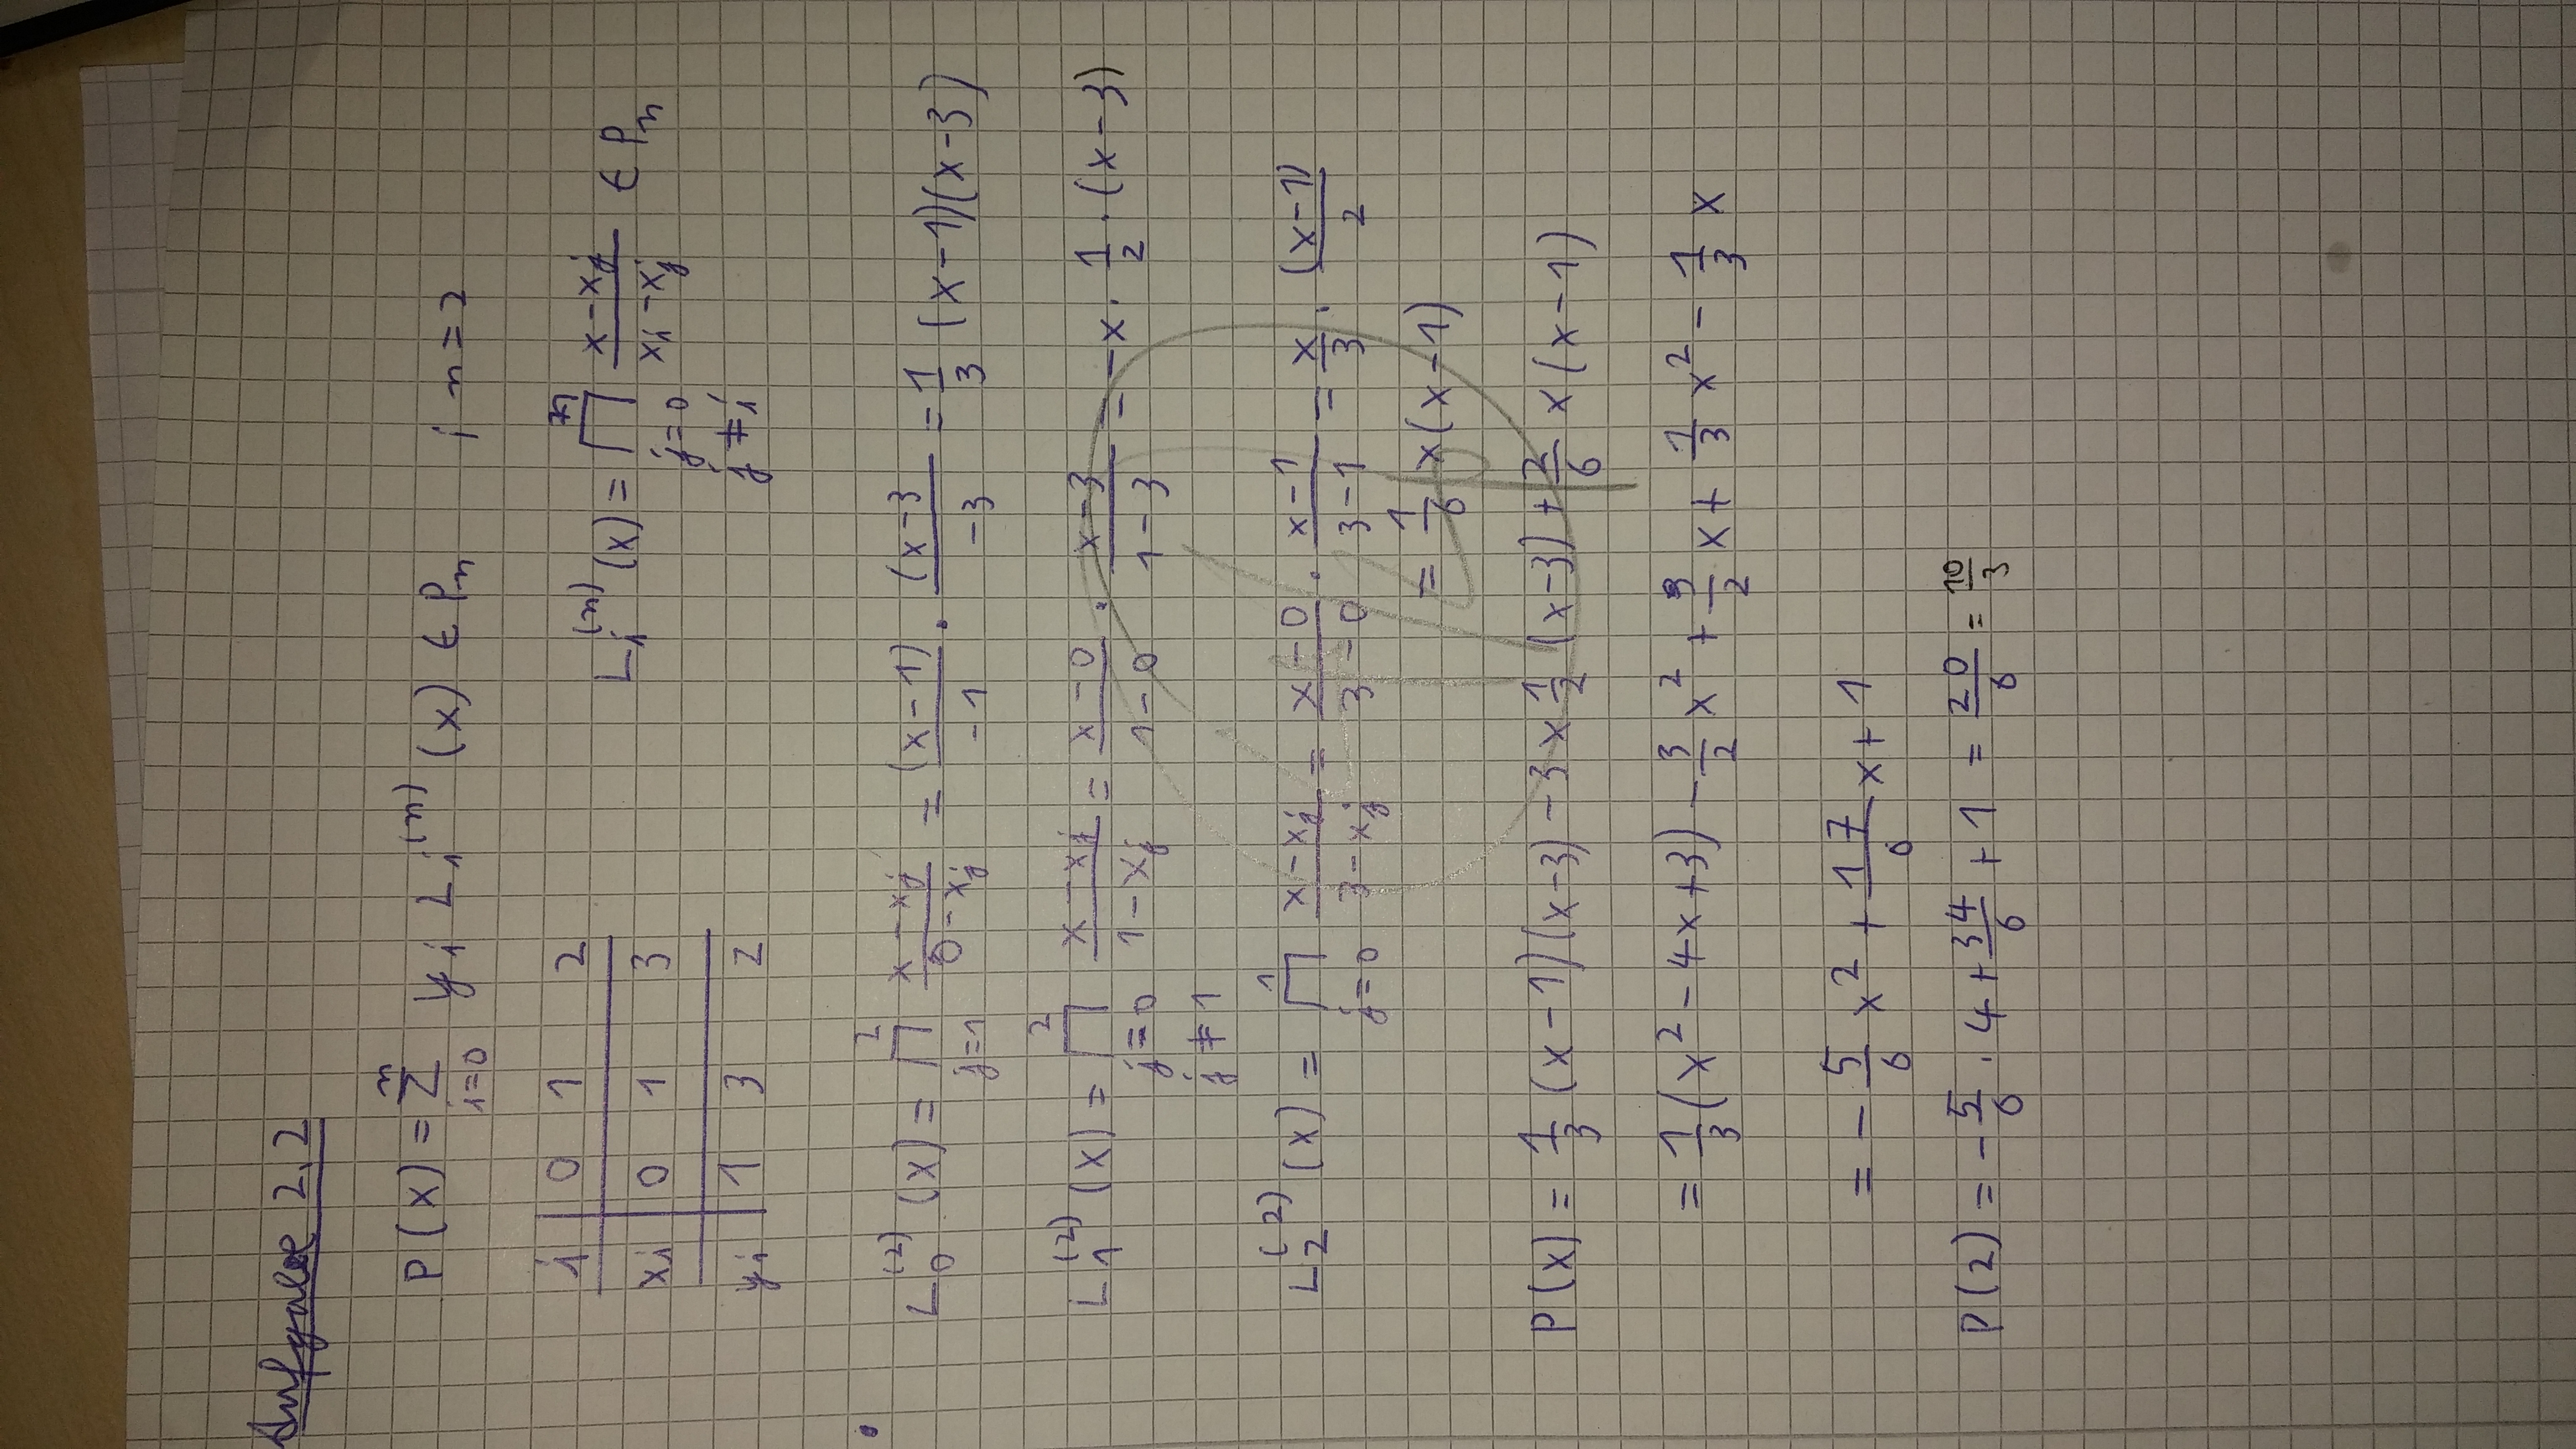 Aufgabe 2.2
P(x) = ∑_{i=0}^{n} y_i L_i^{(n)} (x) ∈ P_n ; n = 2
i | 0 1 2
x_i | 0 1 3
y_i | 1 3 2
L_i^{(n)} (x) = ∏_{j=0, j≠i}^{n} \frac{x - x_j}{x_i - x_j} ∈ P_n
L_0^{(2)} (x) = ∏_{j=1}^{2} \frac{x - x_j}{0 - x_j} = \frac{(x - 1)}{-1} · \frac{(x - 3}{-3} = \frac{1}{3} (x - 1)(x - 3)
L_1^{(2)} (x) = ∏_{j=0, j≠1}^{2} \frac{x - x_j}{1 - x_j} = \frac{x - 0}{1 - 0} · \frac{x - 3}{1 - 3} = -x · \frac{1}{2} · (x - 3)
L_2^{(2)} (x) = ∏_{j=0}^{1} \frac{x - x_j}{3 - x_j} = \frac{x - 0}{3 - 0} · \frac{x - 1}{3 - 1} = \frac{x}{3} · \frac{(x - 1)}{2}
= \frac{1}{6} x (x - 1)
P(x) = \frac{1}{3} (x - 1)(x - 3) - 3 x \frac{1}{2} (x - 3) + \frac{2}{6} x (x - 1)
= \frac{1}{3} (x^2 - 4x + 3) - \frac{3}{2} x^2 + \frac{9}{2} x + \frac{1}{3} x^2 - \frac{1}{3} x
= - \frac{5}{6} x^2 + \frac{17}{6} x + 1
P(2) = - \frac{5}{6} · 4 + \frac{34}{6} + 1 = \frac{20}{6} = \frac{10}{3}